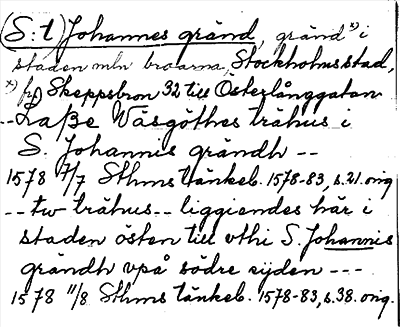 (S:t) Johannes gränd, gränd x) i
staden mln broarna, Stockholms stad,
x) fr Skeppsbron 32 till Österlånggatan
-- Laße Wäsgöthes trähus i
S. Johannis grändh --
1578 7/7 Sthms tänkeb. 1578-83, s.21. orig
-- tw trähus -- liggiendes här i
staden östen till vthi S. Johannis
grändh vpå södre sijden ---
1578 11/8 Sthms tänkeb. 1578-83, s.38. orig.